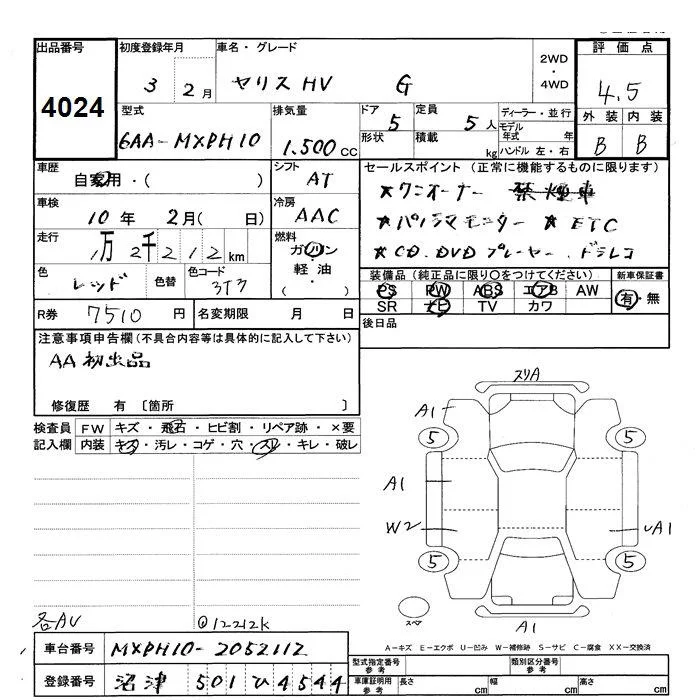 出品番号 初度登録年月 車名・グレード 評価点
4024 3 2月 ヤリスHV G 2WD・4WD 4.5
型式 排気量 ドア 定員 ディーラー・並行 外装 内装
6AA-MXPH10 1.500cc 5 5人 モデル年式 年 B B
形状 積載 kg ハンドル 左・右
車歴 自家用・( ) シフト AT セールスポイント (正常に機能するものに限ります)
★ワンオーナー 禁煙車
車検 10年 2月( 日) 冷房 AAC ★パノラマモニター ★ETC
走行 1万2千212km 燃料 ガソリン・軽油・( ) ★CD.DVDプレーヤー.ドラレコ
色 レッド 色替 色コード 3T3 装備品(純正品に限り○をつけてください) 新車保証書
PS PW ABS エアB AW 有・無
SR ナビ TV カワ
R券 7510円 名変期限 月 日 後日品
注意事項申告欄(不具合内容等は具体的に記入して下さい)
AA初出品
修復歴 有 〔箇所 〕
検査員記入欄 FW キズ・飛石・ヒビ割・リペア跡・×要
内装 キズ・汚レ・コゲ・穴・スレ・キレ・破レ
スリA
A1
5 5
A1
W2 uA1
5 5
スペア
A1
@12212K
A=キズ E=エクボ U=凹み W=補修跡 S=サビ C=腐食 XX=交換済
車台番号 MXPH10-2052112 型式指定番号 参考 類別区分番号 参考
登録番号 沼津 501 ひ 4544 車庫証明用 参考 長さ cm 幅 cm 高さ cm